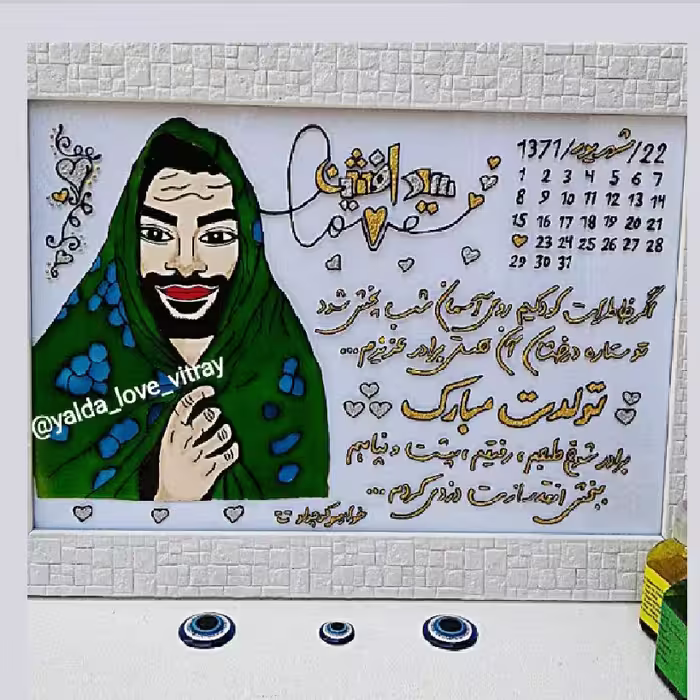 سید افشین
1371/شهریور/22
1 2 3 4 5 6 7
8 9 10 11 12 13 14
15 16 17 18 19 20 21
23 24 25 26 27 28
29 30 31
اگر خاطرات کودکیم روی آسمان شب پخش شود
تو ستاره درخشان آن هستی برادر عزیزم...
تولدت مبارک
برادر شوخ طبعم، رفیقم، پشت و پناهم
ببخش انقدر ازت دزدی کردم...
خواهر کوچولوت
@yalda_love_vitray